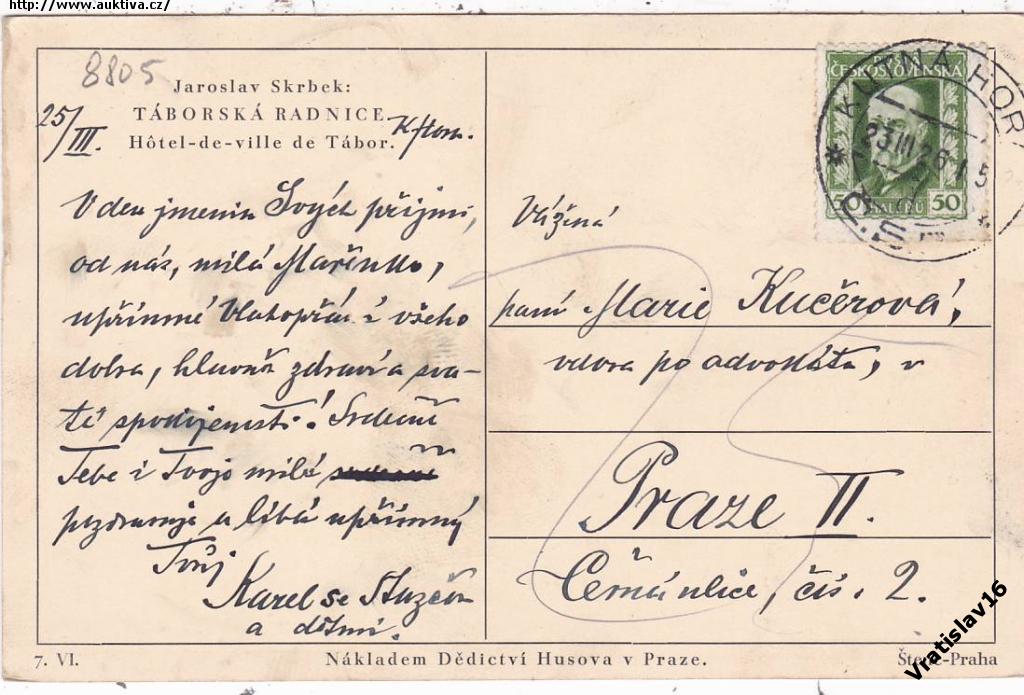 http://www.auktiva.cz/
8805
Jaroslav Skrbek:
TÁBORSKÁ RADNICE
Hôtel-de-ville de Tábor.
25/III.
V den jmenin Svých přijmi,
od nás, milá Mařenko,
upřímné blahopřání všeho
dobra, hlavně zdraví a sva-
té spokojenosti! Srdečně
Tebe i Tvoje milé
pozdravuje a líbá upřímný
Tvůj
Karel se
a dětmi.
ČESKOSLOVENSKA
50 HALÉŘŮ 50
KUTNÁ HORA
23 III 26
Vážená
paní Marie Kučerová,
vdova po advokátu, v
Praze II.
Černá ulice, čís. 2.
7. VI.
Nákladem Dědictví Husova v Praze.
Štenc-Praha
Vratislav16